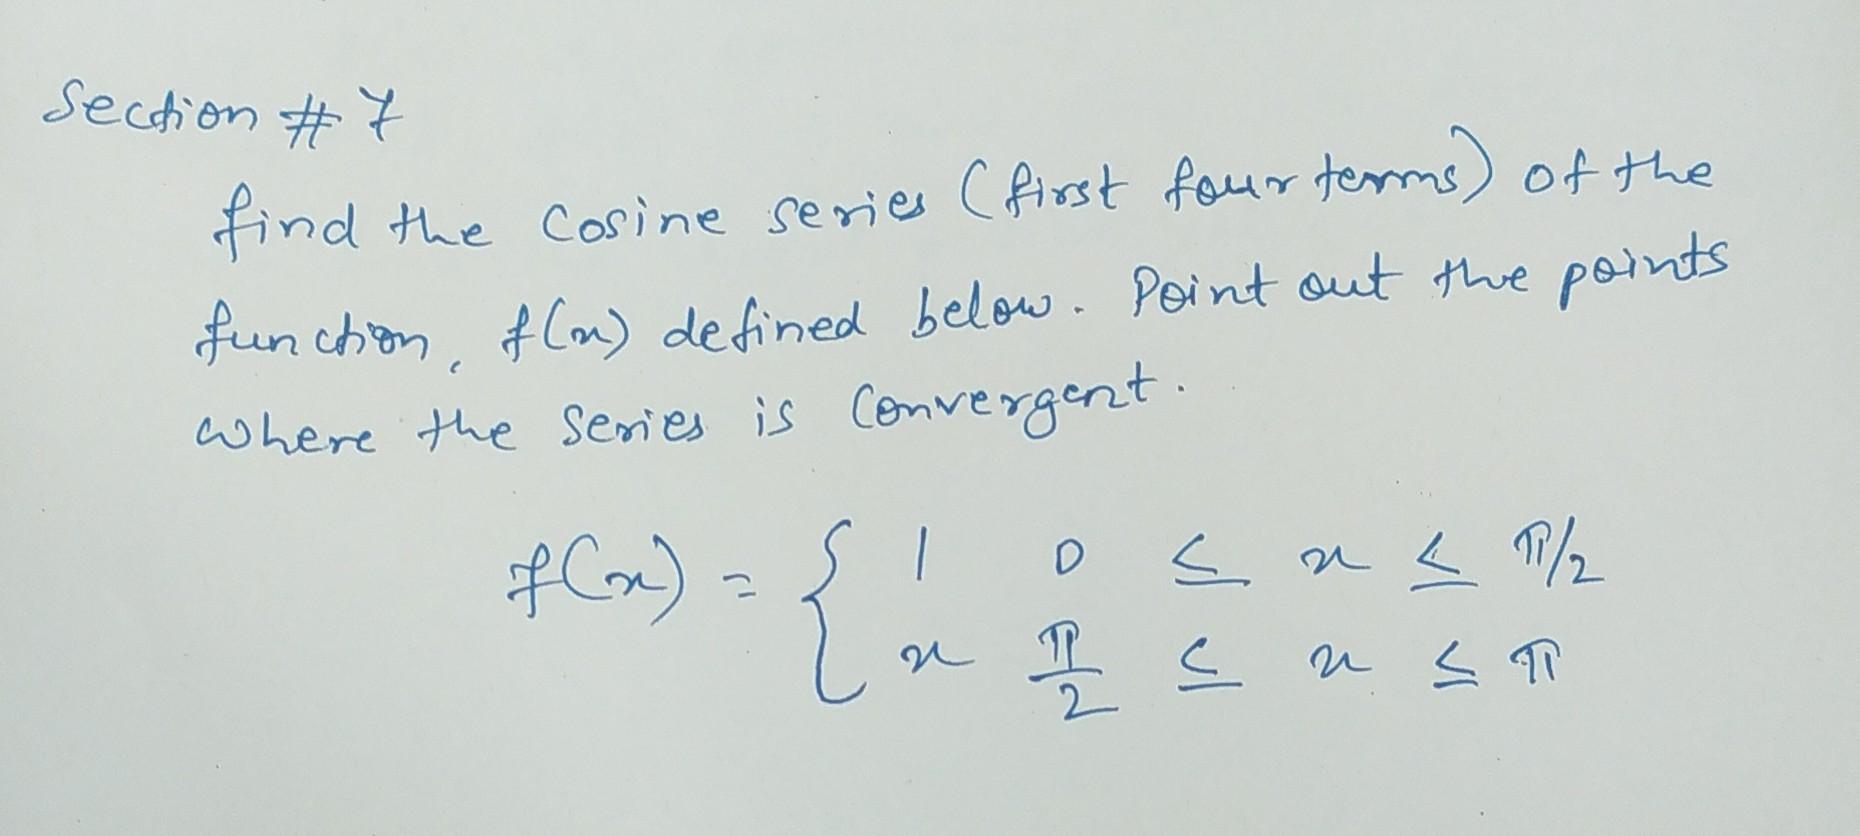 Section # 7
find the cosine series (first four terms) of the
function, f(x) defined below. Point out the points
where the series is convergent.
f(x) = { 1 0 ≤ x ≤ π/2
x π/2 ≤ x ≤ π